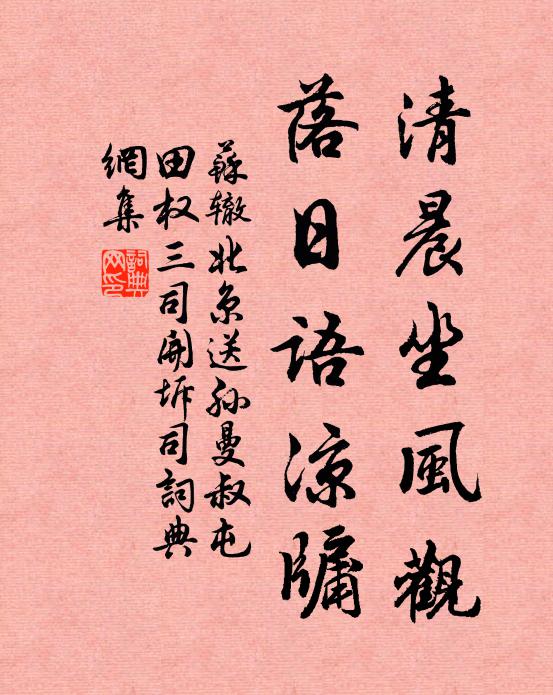 清晨坐風觀
落日語涼牖
蘇辙北京送孙曼叔屯
田权三司開坼司詞典
網集
詞典网印